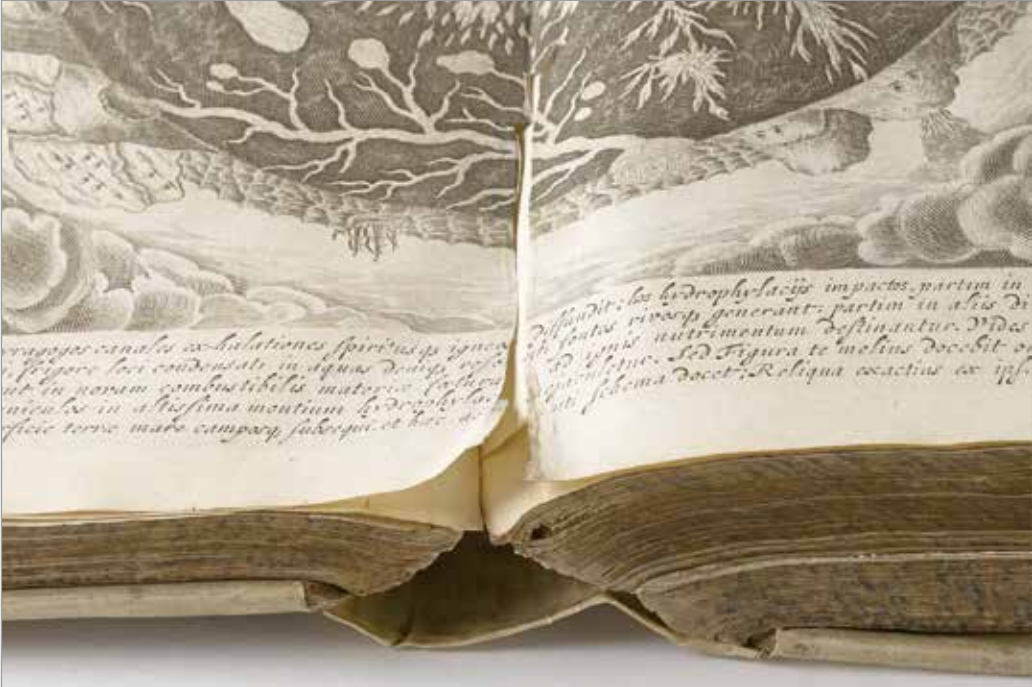 ragogos canales ex halationes spiritusq; igneo
frigore loci condensati in aquas deniq;
in novam combustibilis materiæ
niculos in altissima montium hydrophylac
rficie terræ mare camposq; subsequi. et hæc
diffundit; hos hydrophylacijs impactos, partim in
fontes rivosq; generant; partim in aliis di
ad ignis nutrimentum destinantur. Vides
Sed Figura te melius docebit
uti schema docet. Reliqua exactius ex ips